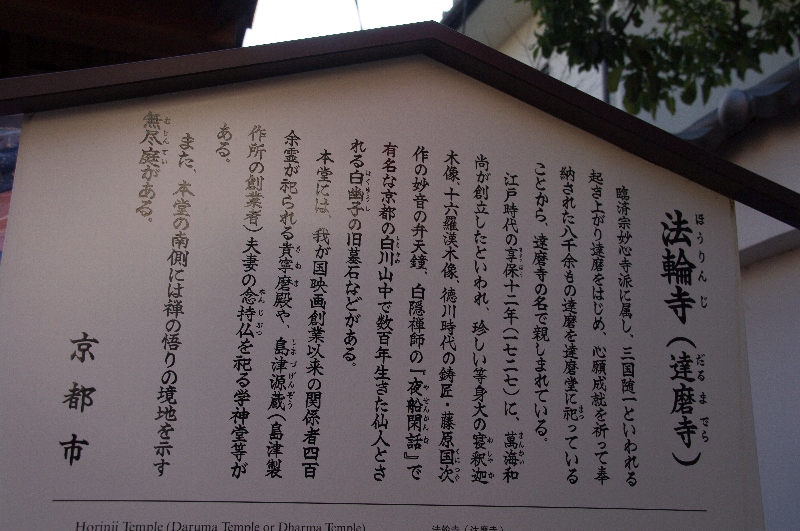 法輪寺（達磨寺）
ほうりんじ だるまでら
臨済宗妙心寺派に属し、三国随一といわれる
起き上がり達磨をはじめ、心願成就を祈って奉
納された八千余もの達磨を達磨堂に祀っている
まつ
ことから、達磨寺の名で親しまれている。
江戸時代の享保十二年（一七二七）に、萬海和
きょうほう ばんかい
尚が創立したといわれ、珍しい等身大の寝釈迦
ねしゃか
木像、十六羅漢木像、徳川時代の鋳匠・藤原国次
くにつぐ
作の妙音の弁天鐘、白隠禅師の『夜船閑話』で
やせんかんな
有名な京都の白川山中で数百年生きた仙人とさ
れる白幽子の旧墓石などがある。
はくゆうし
本堂には、我が国映画創業以来の関係者四百
余霊が祀られる貴寧磨殿や、島津源蔵（島津製
きねま しまづげんぞう
作所の創業者）夫妻の念持仏を祀る学神堂等が
ねんじぶつ
ある。
また、本堂の南側には禅の悟りの境地を示す
無尽庭がある。
むじんてい
京都市
Horinji Temple (Daruma Temple or Dharma Temple)
法輪寺（达摩寺）